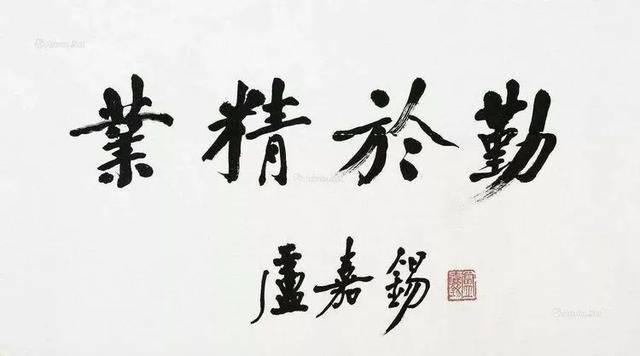 業精於勤
盧嘉錫